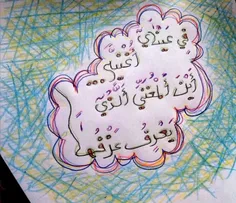 في عيناي
أغنية..
أين المغني الذي
يعرف عزفها